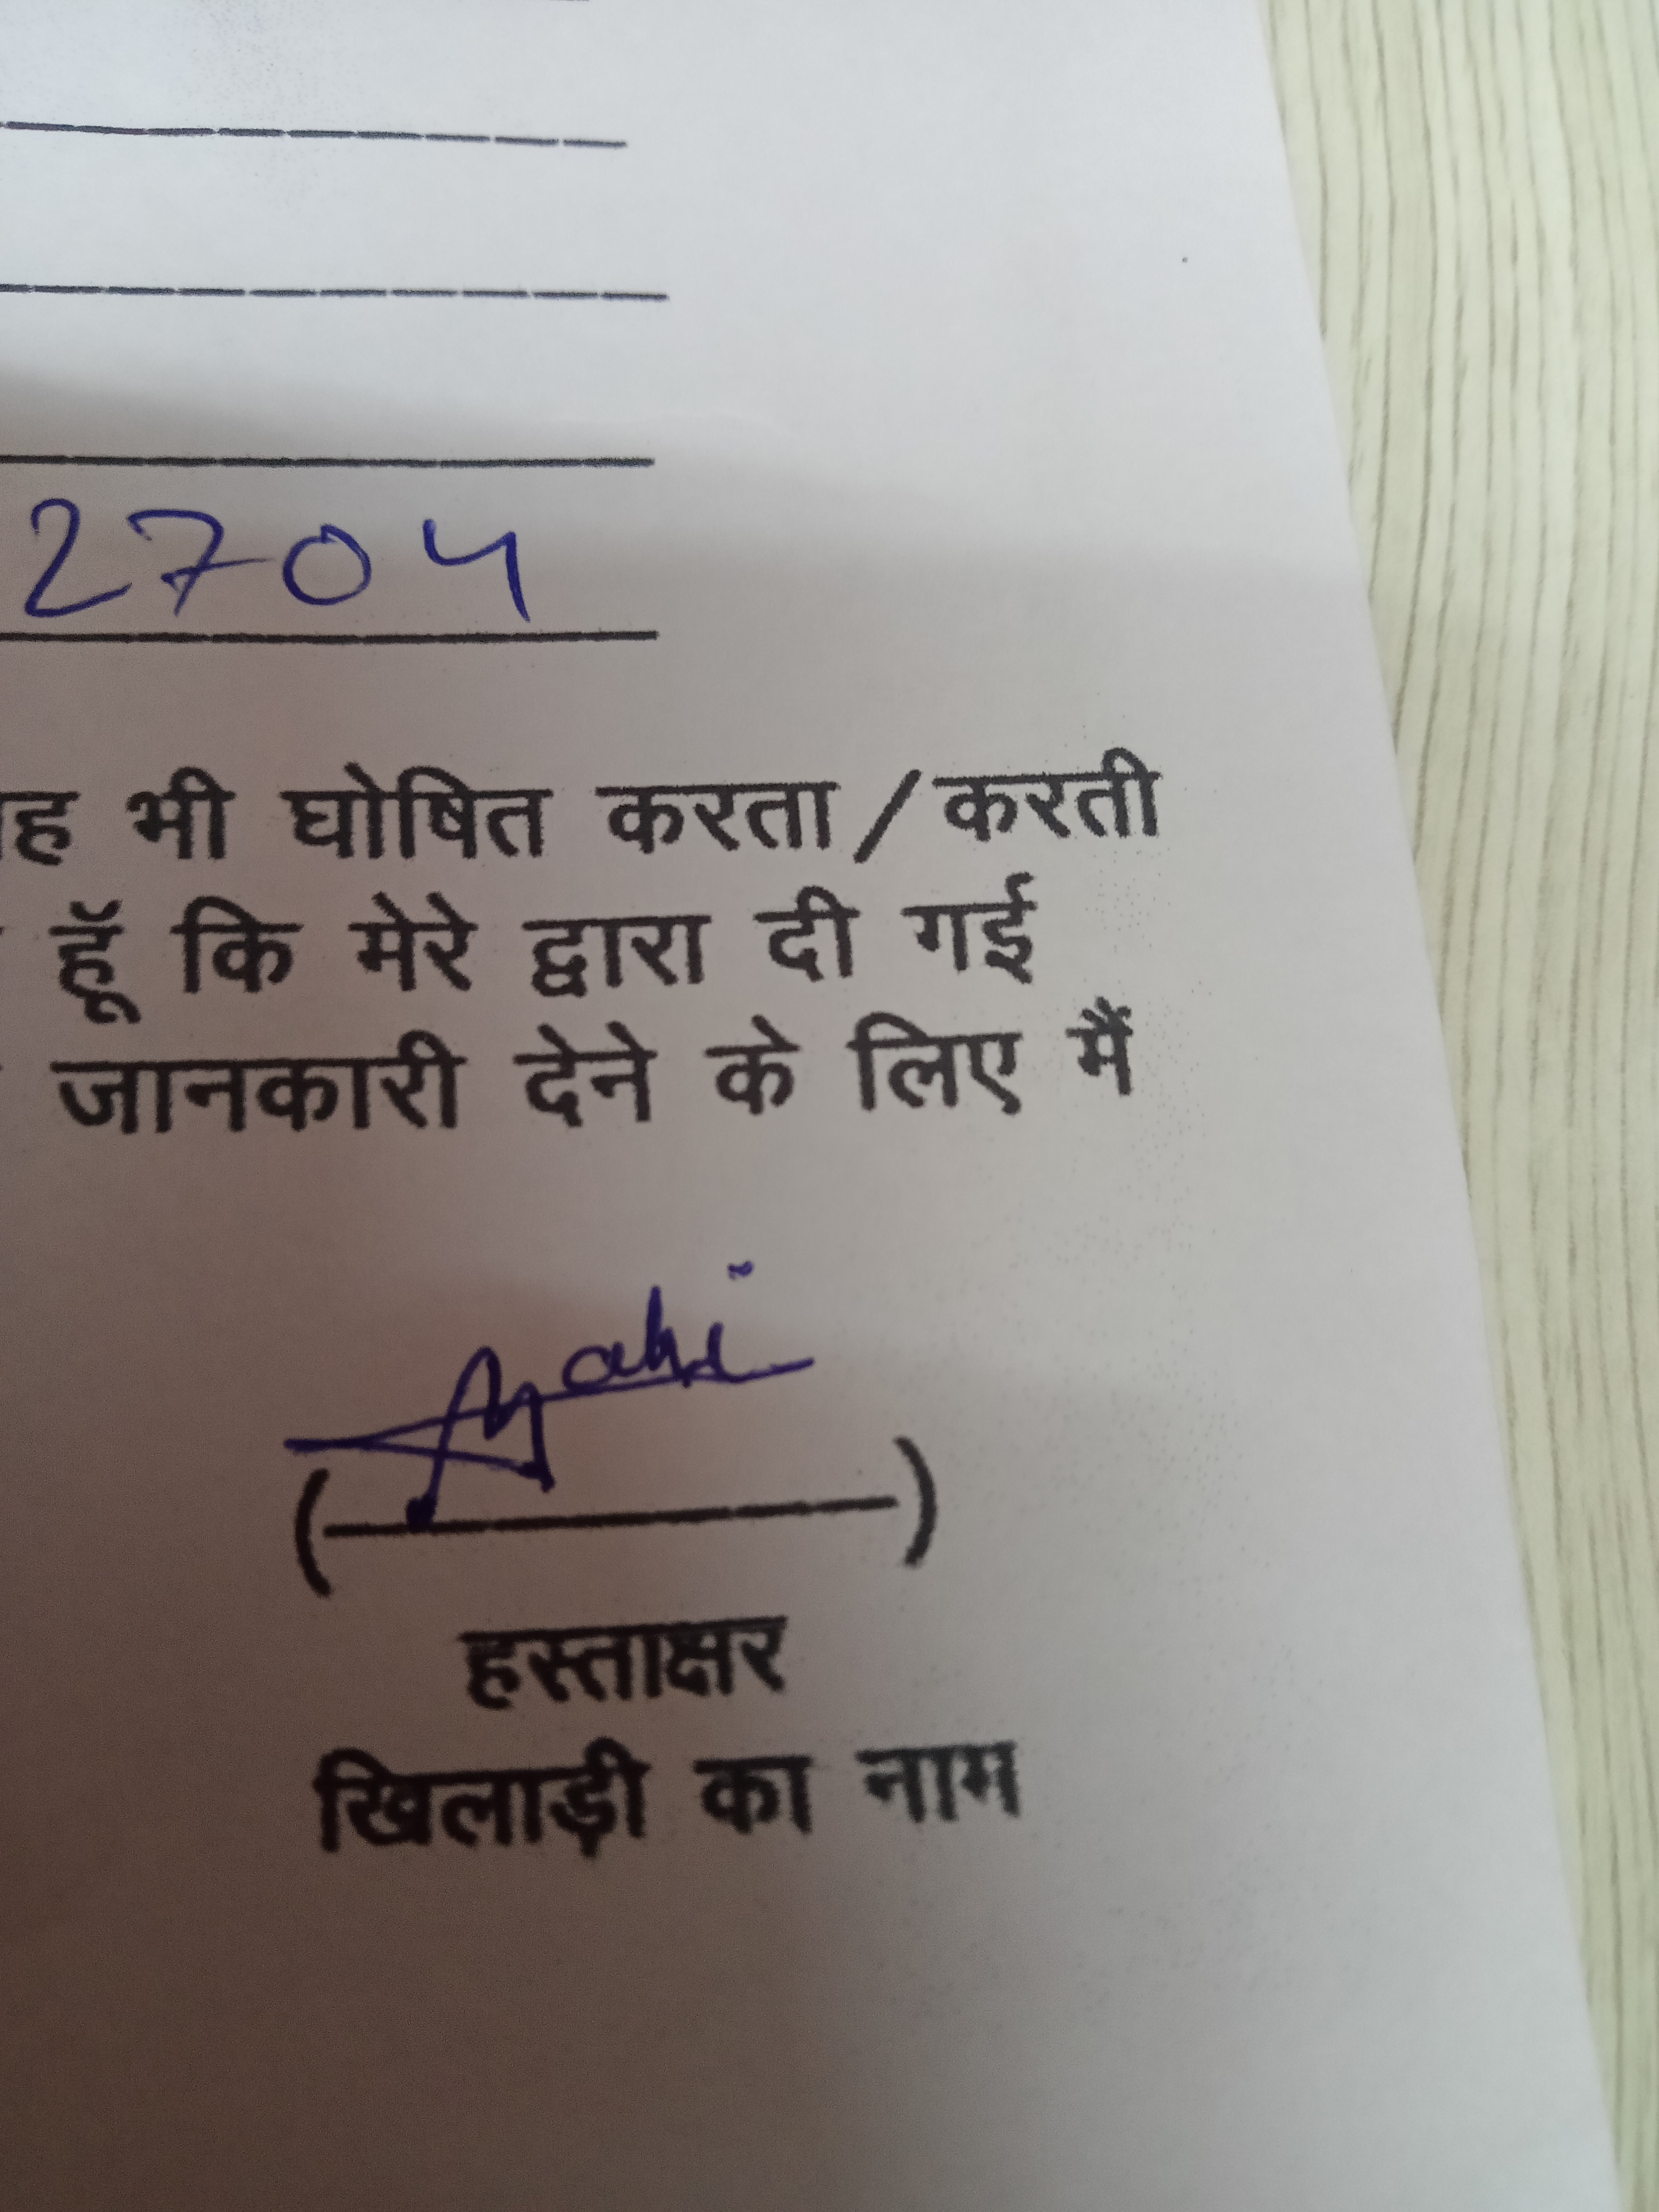 2704
यह भी घोषित करता/करती
हूॅ कि मेरे द्वारा दी गई
जानकारी देने के लिए मैं
Mahi
(————————)
हस्ताक्षर
खिलाड़ी का नाम